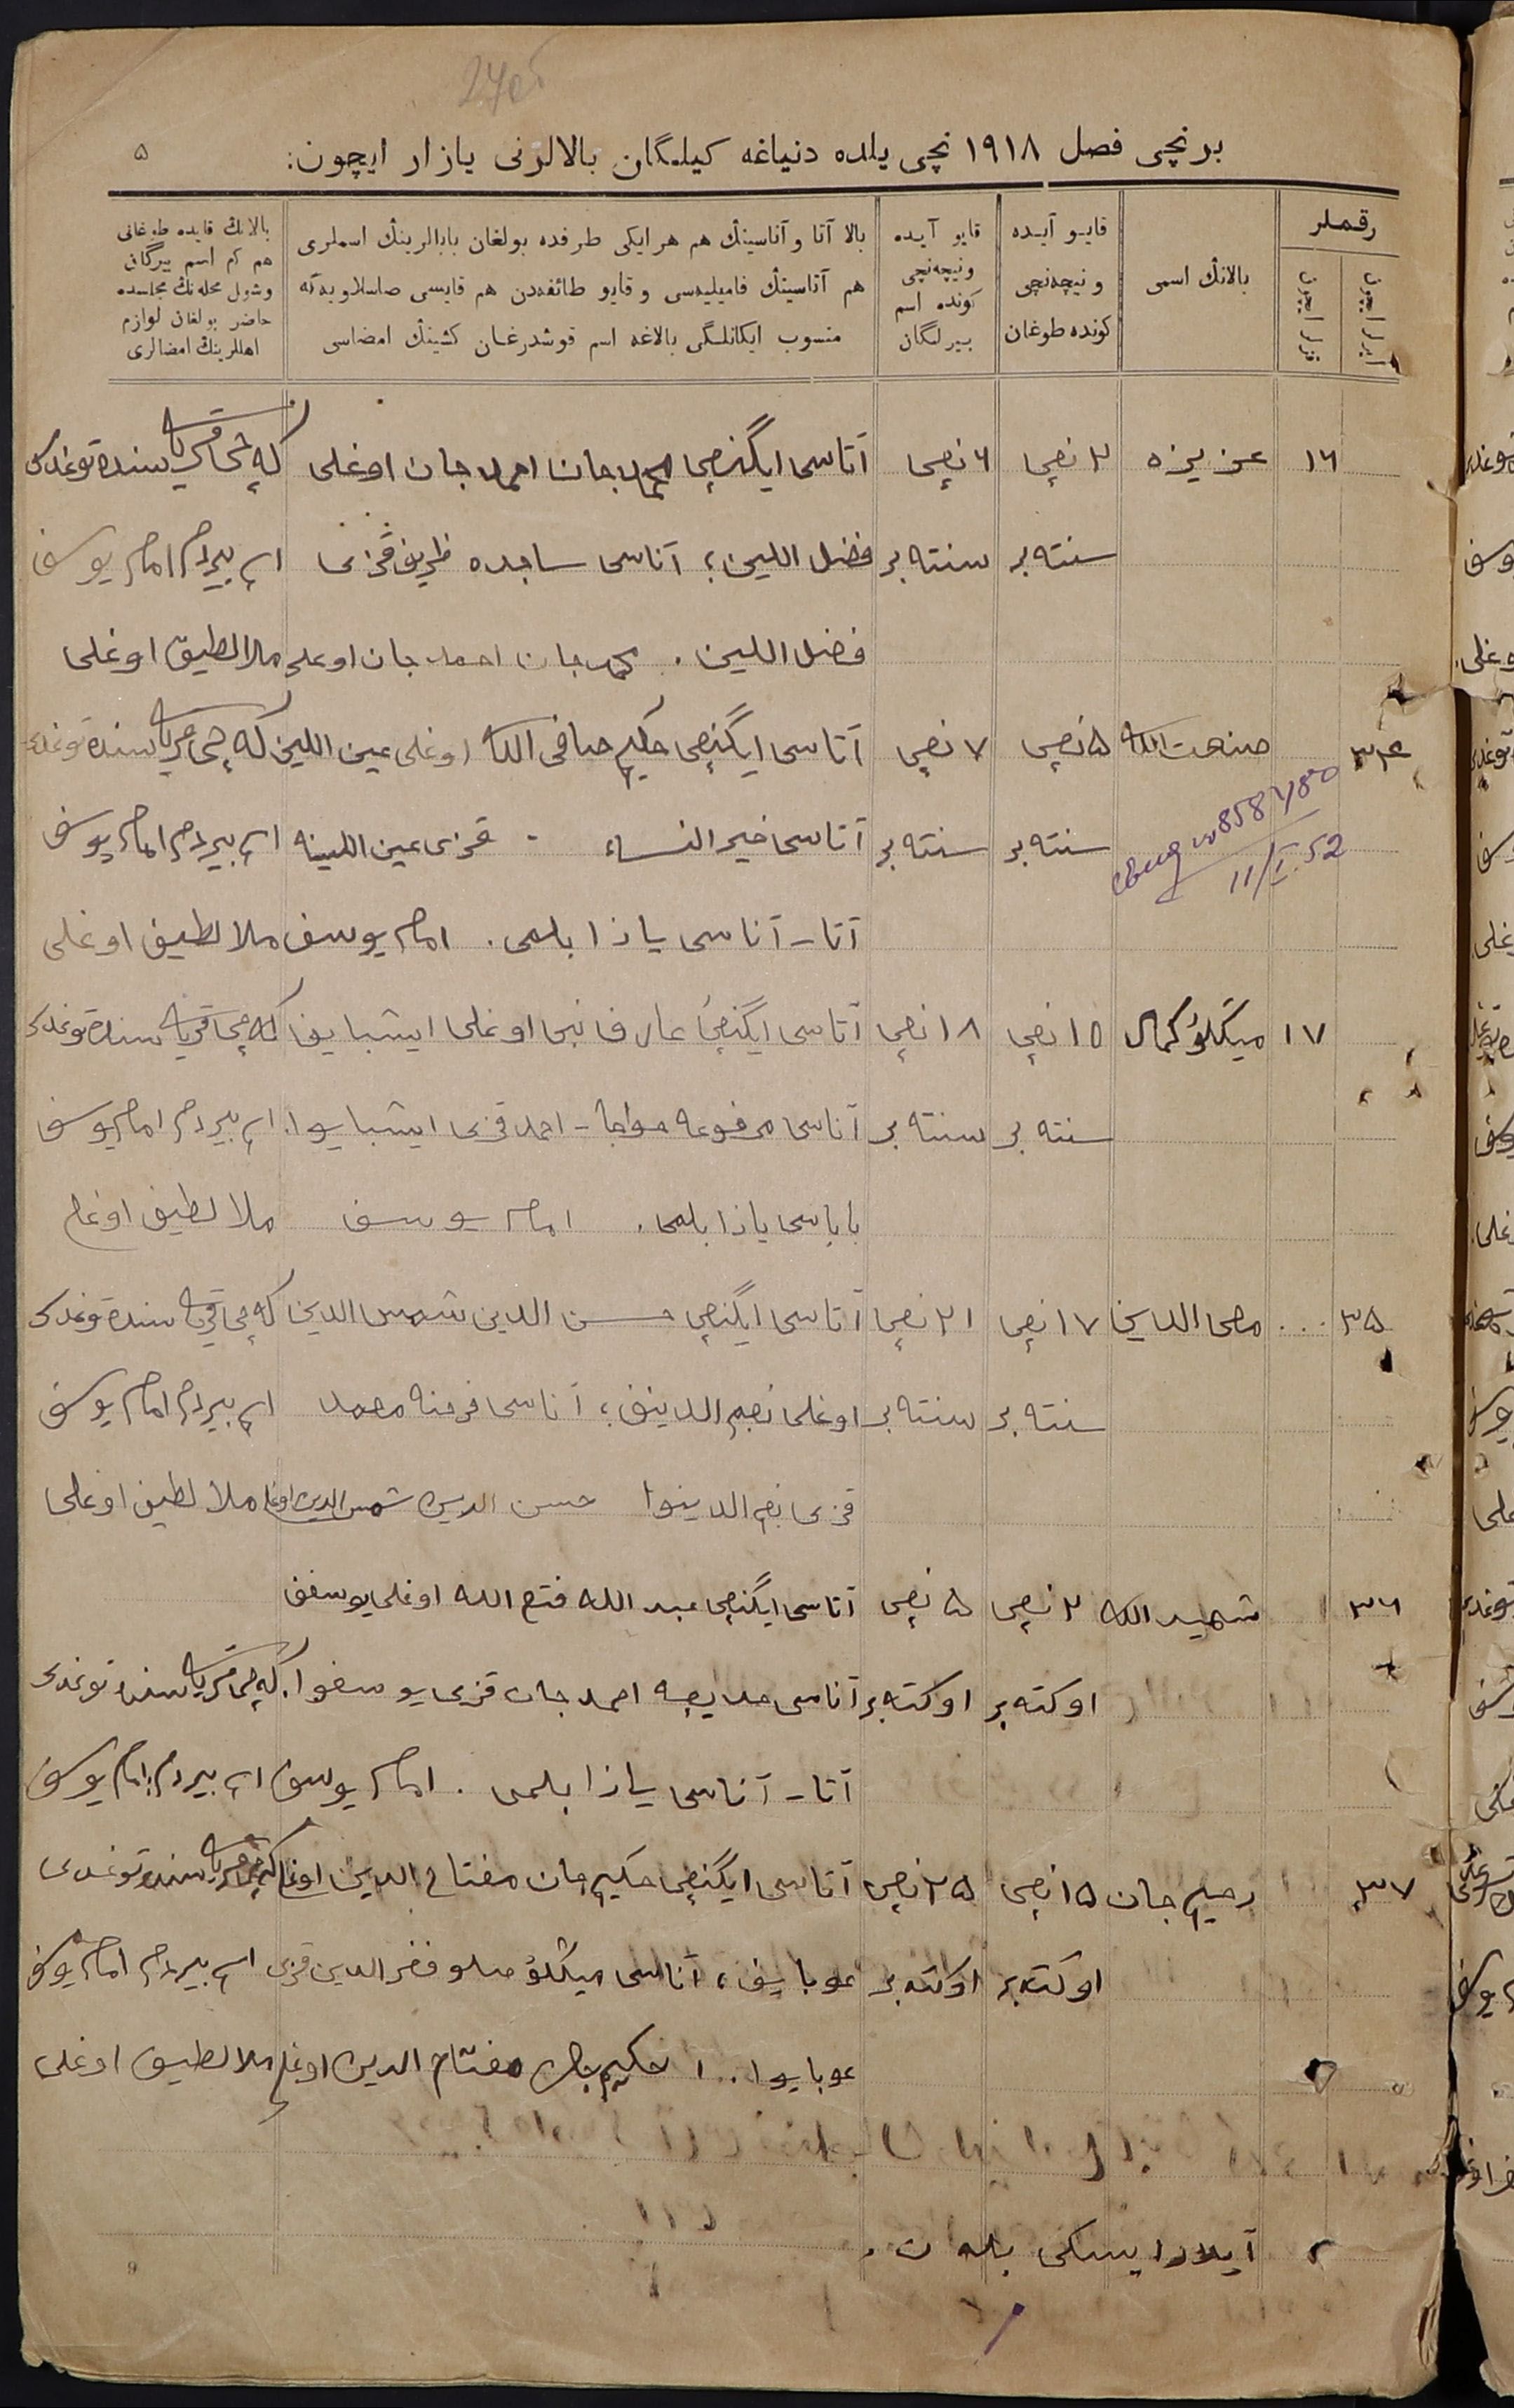 برنچی فصل ١٩١٨ نچی یلده دنیاغه کیلگان بالالرنی یازار ایچون:
۵
رقملر
ایرلر ایچون
قزلر ایچون
بالانڭ اسمی
قایو آیده ونیچه‌نچی کونده طوغان
قایو آیده ونیچه‌نچی کونده اسم بیرلگان
بالا آتا و آناسینڭ هم هر ایکی طرفده بولغان بابالرینڭ اسملری
هم آتاسینڭ فامیلیه‌سی و قایو طائفه‌دن هم قایسی صاصلاویه‌گه
منسوب ایکانلگی بالاغه اسم قوشدرغان کشینڭ امضاسی
بالانڭ قایده طوغانی
هم کم اسم بیرگان
وشول محله‌نڭ مجلسده
حاضر بولغان لوازم
اهللرینڭ امضالری
١٦ عزیزه ٣ نچی ٦ نچی آتاسی ایگنچی محمدجان احمدجان اوغلی که‌چی قریه‌سنده توغدی
سنته‌بر سنته‌بر فضل اللین؛ آناسی ساجده ظریف قزی اسم بیردم امام یوسف
فضل اللین. محمدجان احمدجان اوغلی ملا لطیف اوغلی
٣٤ صنعت الله ۵ نچی ٧ نچی آتاسی ایگنچی حکیم صافی الله اوغلی عین اللین که‌چی قریه‌سنده توغدی
سنته‌بر سنته‌بر آناسی خیرالنساء - قزی عین اللینه اسم بیردم امام یوسف
858780
11/I.52
آتا-آناسی یازا بلمی. امام یوسف ملا لطیف اوغلی
١٧ میڭلوکمال ١۵ نچی ١٨ نچی آتاسی ایگنچی عارف نبی اوغلی ایشبایف که‌چی قریه‌سنده توغدی
سنته‌بر سنته‌بر آناسی مرفوعه خواجه-احمد قزی ایشبایوا. اسم بیردم امام یوسف
باباسی یازا بلمی. امام یوسف ملا لطیف اوغلی
٣۵ محی الدین ١٧ نچی ٢١ نچی آتاسی ایگنچی حسن الدین شمس الدین که‌چی قریه‌سنده توغدی
سنته‌بر سنته‌بر اوغلی نجم الدینف؛ آناسی محمد اسم بیردم امام یوسف
قزی نجم الدینوا حسن الدین شمس الدین اوغلی ملا لطیف اوغلی
٣٦ شهید الله ٢ نچی ۵ نچی آتاسی ایگنچی عبد الله فتح الله اوغلی یوسفف
اوکته‌بر اوکته‌بر آناسی احمدجان قزی یوسفوا. که‌چی قریه‌سنده توغدی
آتا-آناسی یازا بلمی. امام یوسف اسم بیردم امام یوسف
٣٧ رحیم جان ١۵ نچی ٢۵ نچی آتاسی ایگنچی حکیم جان مفتاح الدین اوغلی که‌چی قریه‌سنده توغدی
اوکته‌بر اوکته‌بر عوبایف، آناسی میڭلو فخر الدین قزی اسم بیردم امام یوسف
عوبایوا. حکیم جان مفتاح الدین اوغلی ملا لطیف اوغلی
آیلار ایسکی بله‌ن.